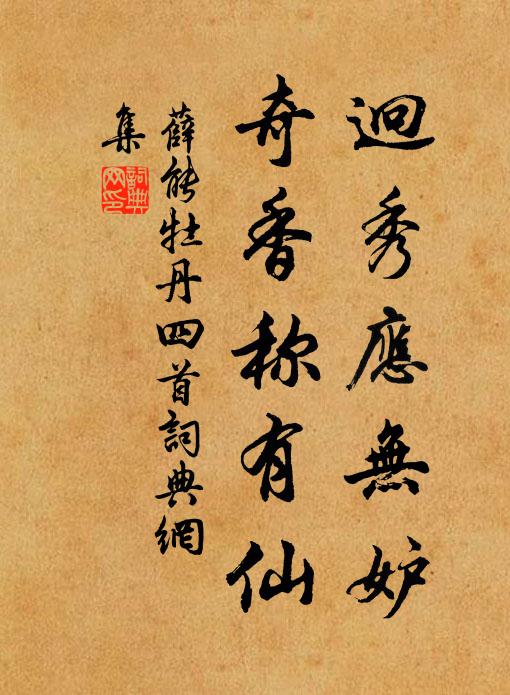 迥秀應無妒
奇香称有仙
薛能牡丹四首詞典網
集
詞典網印